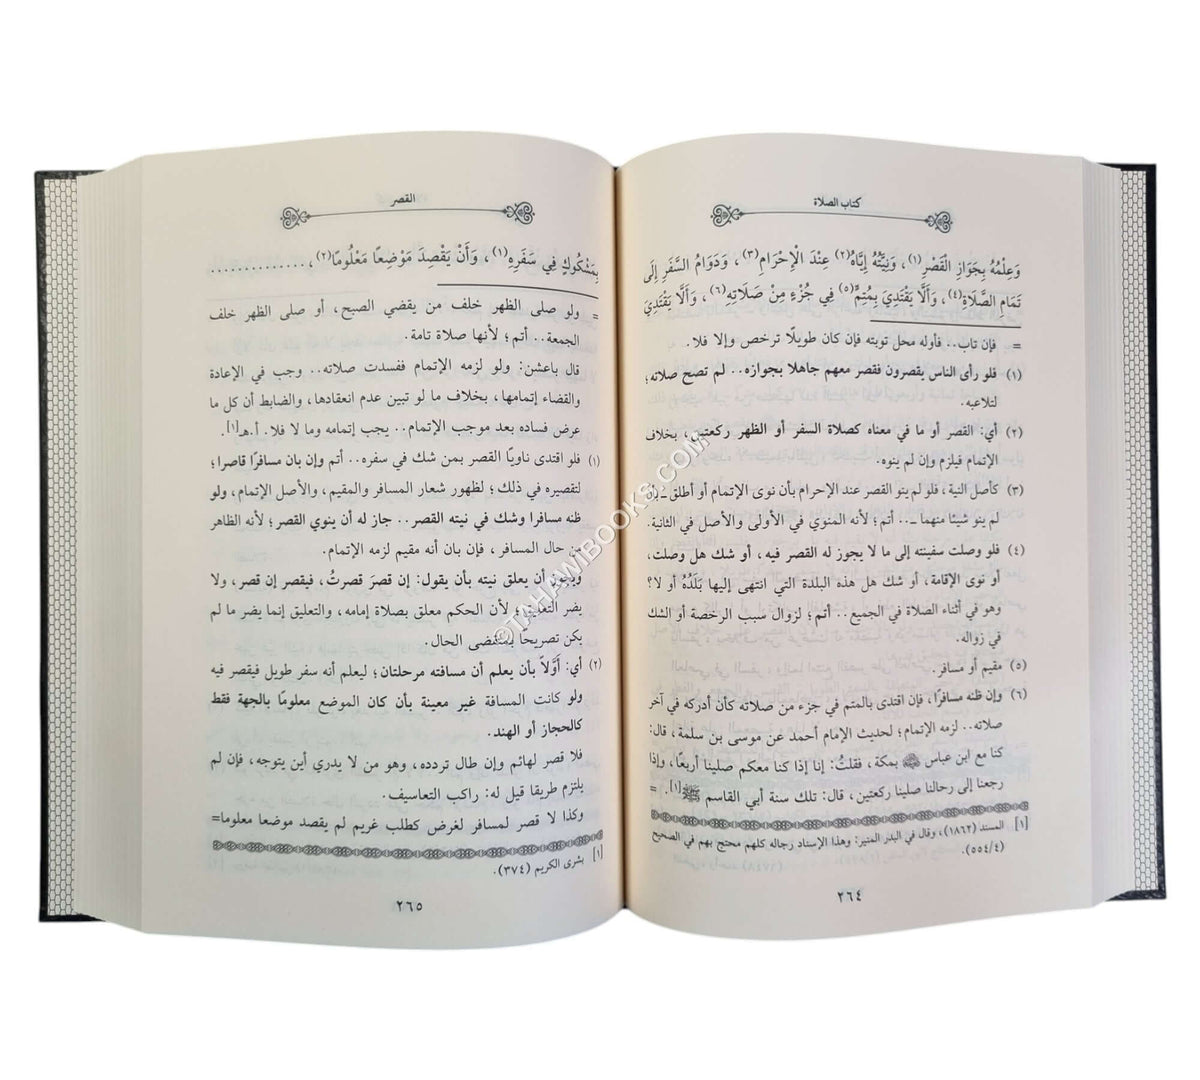 كتاب الصلاة
وَعِلْمُهُ بِجَوَازِ الْقَصْرِ(١)، وَنِيَّتُهُ إِيَّاهُ(٢) عِنْدَ الْإِحْرَامِ(٣)، وَدَوَامُ السَّفَرِ إِلَى
تَمَامِ الصَّلَاةِ(٤)، وَأَلَّا يَقْتَدِيَ بِمُتِمٍّ(٥) فِي جُزْءٍ مِنْ صَلَاتِهِ(٦)، وَأَلَّا يَقْتَدِيَ
= فإن تاب.. فأوله محل توبته فإن كان طويلًا ترخص وإلا فلا.
(١) فلو رأى الناس يقصرون فقصر معهم جاهلا بجوازه.. لم تصح صلاته؛
لتلاعبه.
(٢) أي: القصر أو ما في معناه كصلاة السفر أو الظهر ركعتين، بخلاف
الإتمام فيلزم وإن لم ينوه.
(٣) كأصل النية، فلو لم ينو القصر عند الإحرام بأن نوى الإتمام أو أطلق ـ بأن
لم ينو شيئا منهما ـ.. أتم؛ لأنه المنوي في الأولى والأصل في الثانية.
(٤) فلو وصلت سفينته إلى ما لا يجوز له القصر فيه، أو شك هل وصلت،
أو نوى الإقامة، أو شك هل هذه البلدة التي انتهى إليها بَلَدُهُ أو لا؟
وهو في أثناء الصلاة في الجميع.. أتم؛ لزوال سبب الرخصة أو الشك
في زواله.
(٥) مقيم أو مسافر.
(٦) وإن ظنه مسافرًا، فإن اقتدى بالمتم في جزء من صلاته كأن أدركه في آخر
صلاته.. لزمه الإتمام؛ لحديث الإمام أحمد عن موسى بن سلمة، قال:
كنا مع ابن عباس بمكة، فقلتُ: إنا إذا كنا معكم صلينا أربعًا، وإذا
رجعنا إلى رحالنا صلينا ركعتين، قال: تلك سنة أبي القاسم ﷺ[١]. =
[١] المسند (١٨٦٢)، وقال في البدر المنير: وهذا الإسناد رجاله كلهم محتج بهم في الصحيح
(٥٥٤/٤).
٢٦٤
القصر
بِمَشْكُوكٍ فِي سَفَرِهِ(١)، وَأَنْ يَقْصِدَ مَوْضِعًا مَعْلُومًا(٢)، ..............
= ولو صلى الظهر خلف من يقضي الصبح، أو صلى الظهر خلف
الجمعة.. أتم؛ لأنها صلاة تامة.
قال باعشن: ولو لزمه الإتمام ففسدت صلاته.. وجب في الإعادة
والقضاء إتمامها، بخلاف ما لو تبين عدم انعقادها، والضابط أن كل ما
عرض فساده بعد موجب الإتمام.. يجب إتمامه وما لا فلا. أ.هـ[١].
(١) فلو اقتدى ناويًا القصر بمن شك في سفره.. أتم وإن بان مسافرًا قاصرا؛
لتقصيره في ذلك؛ لظهور شعار المسافر والمقيم، والأصل الإتمام، ولو
ظنه مسافرا وشك في نيته القصر.. جاز له أن ينوي القصر؛ لأنه الظاهر
من حال المسافر، فإن بان أنه مقيم لزمه الإتمام.
ويجوز أن يعلق نيته بأن يقول: إن قصرَ قصرتُ، فيقصر إن قصر، ولا
يضر التعليق؛ لأن الحكم معلق بصلاة إمامه، والتعليق إنما يضر ما لم
يكن تصريحًا بمقتضى الحال.
(٢) أي: أَوَّلًا بأن يعلم أن مسافته مرحلتان؛ ليعلم أنه سفر طويل فيقصر فيه
ولو كانت المسافة غير معينة بأن كان الموضع معلومًا بالجهة فقط
كالحجاز أو الهند.
فلا قصر لهائم وإن طال تردده، وهو من لا يدري أين يتوجه، فإن لم
يلتزم طريقا قيل له: راكب التعاسيف.
وكذا لا قصر لمسافر لغرض كطلب غريم لم يقصد موضعا معلوما=
[١] بشرى الكريم (٣٧٤).
٢٦٥
©TAHAWIBOOKS.COM